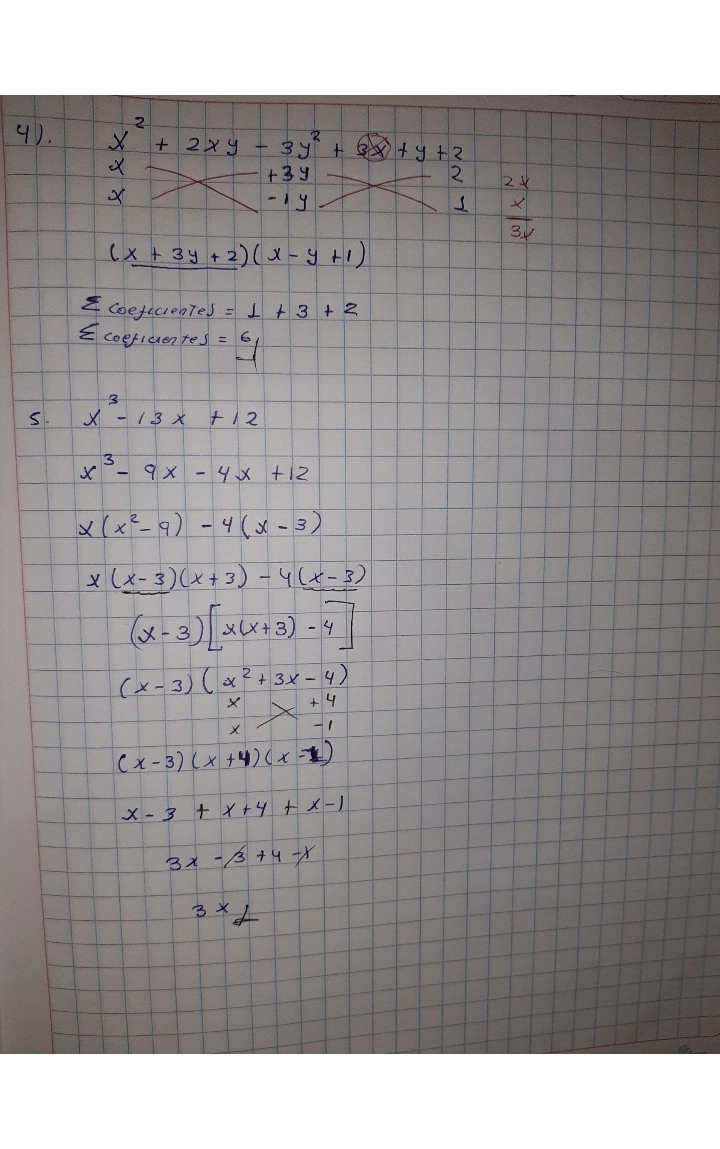 4). x² + 2xy - 3y² + 3x + y + 2
x +3y 2 2x
x -1y 1 x
3x
(x + 3y + 2)(x - y + 1)
Σ coeficientes = 1 + 3 + 2
Σ coeficientes = 6
5. x³ - 13x + 12
x³ - 9x - 4x + 12
x(x² - 9) - 4(x - 3)
x(x - 3)(x + 3) - 4(x - 3)
(x - 3)[x(x + 3) - 4]
(x - 3)(x² + 3x - 4)
x +4
x -1
(x - 3)(x + 4)(x - 1)
x - 3 + x + 4 + x - 1
3x - 3 + 4 - 1
3x